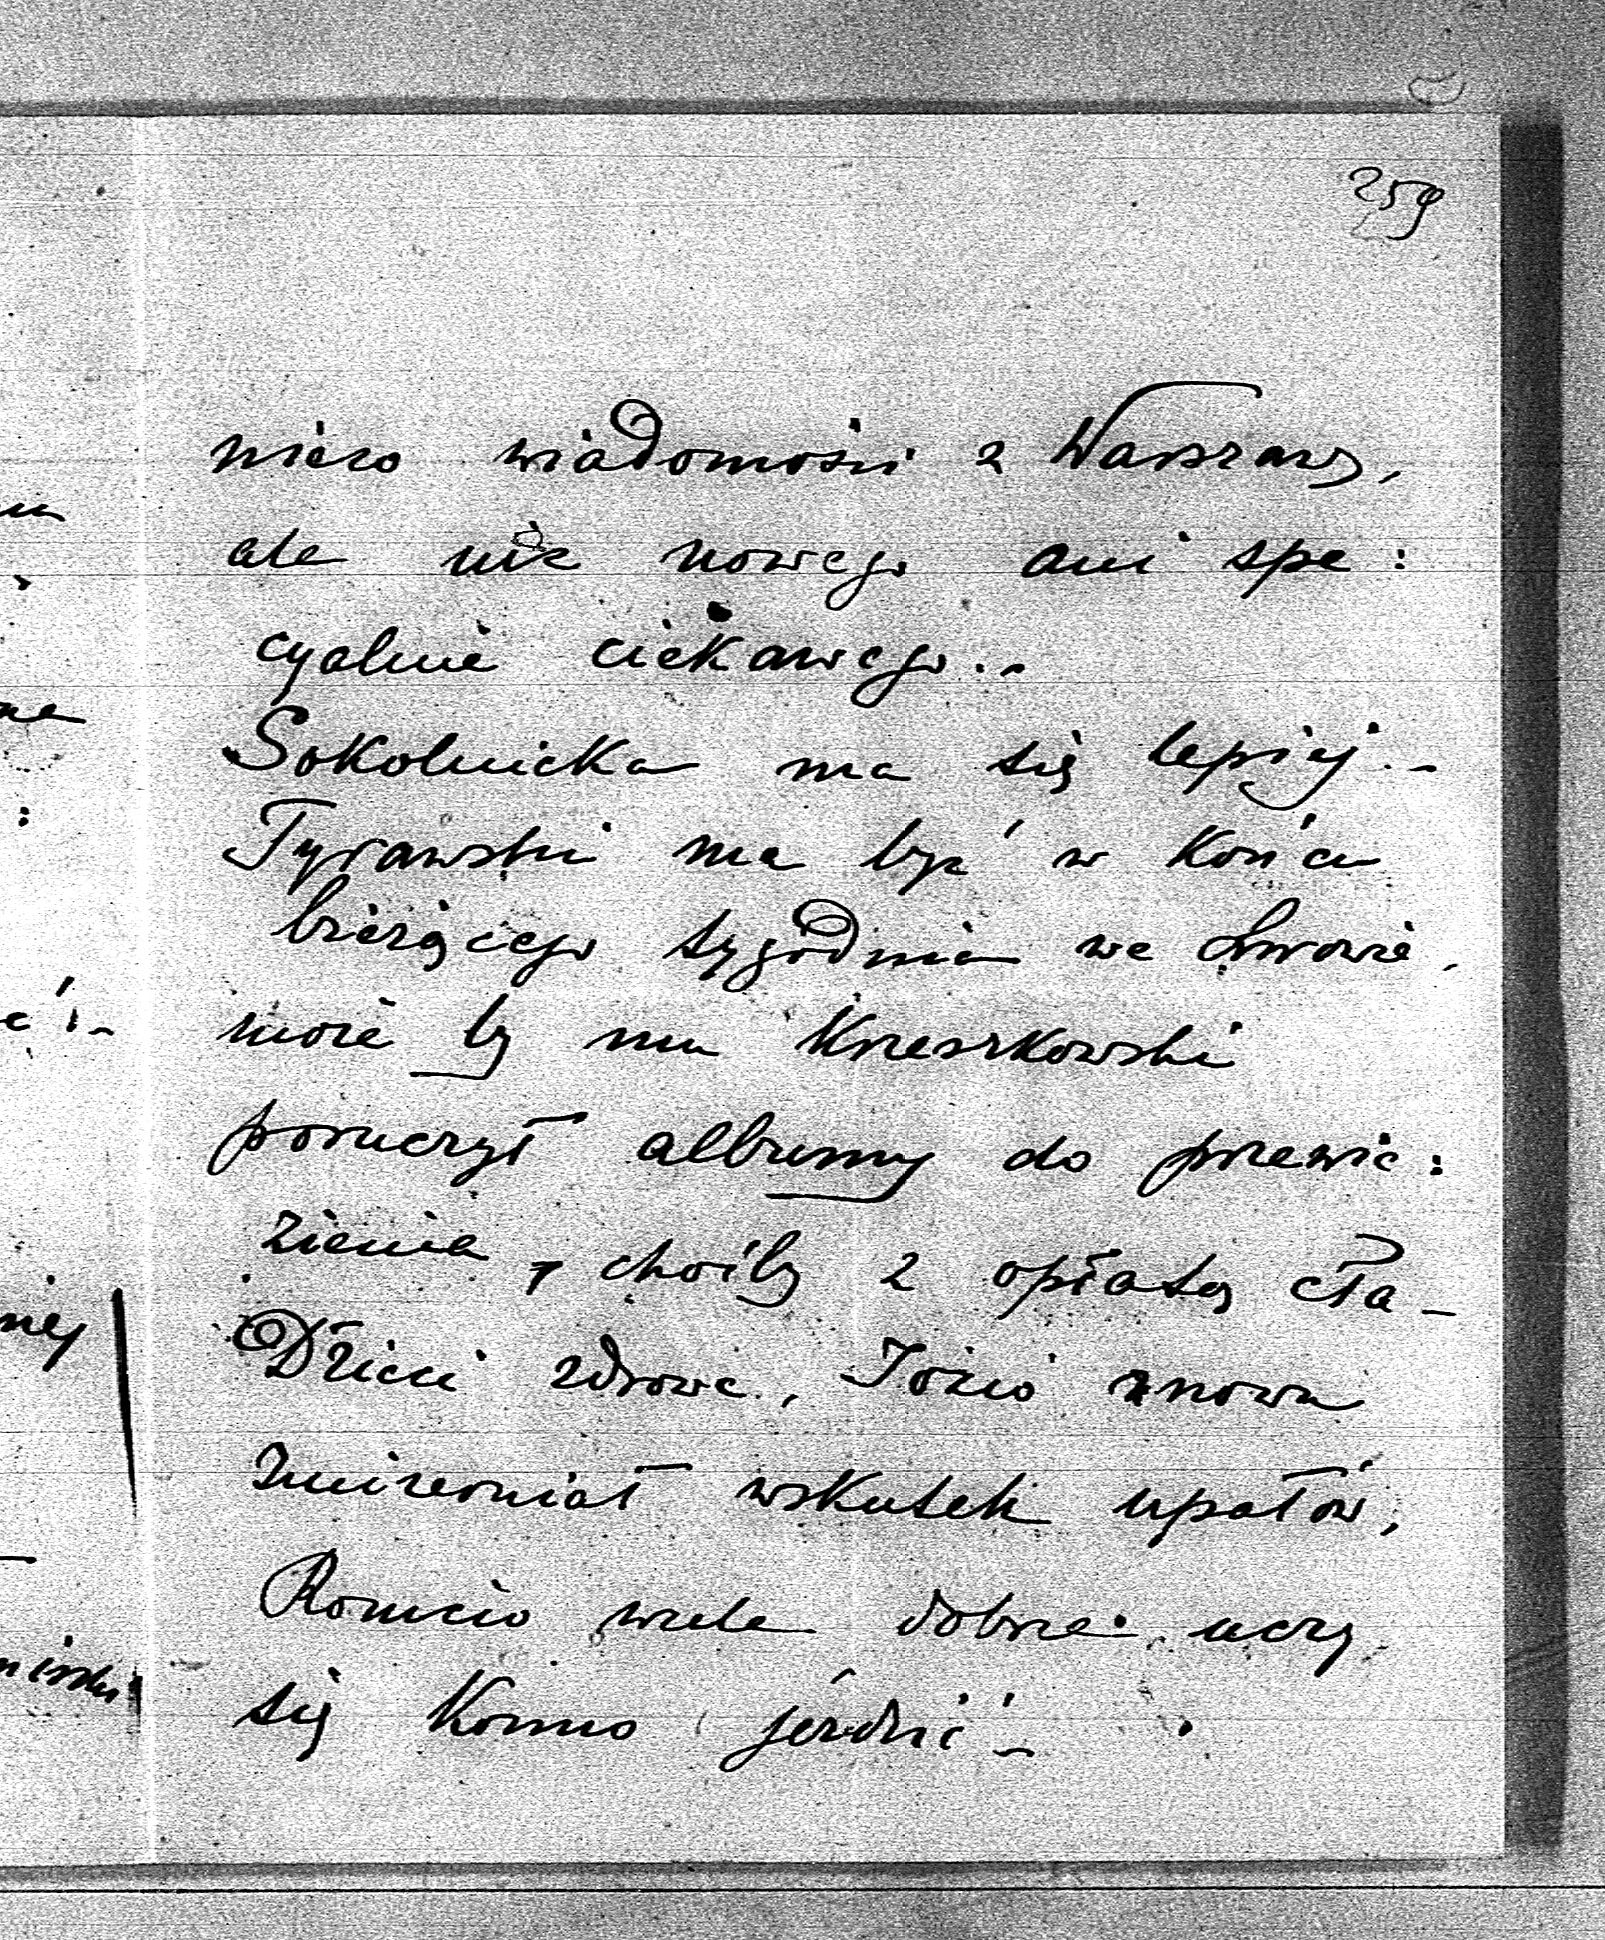 259
nieco wiadomości z Warszawy,
ale nic nowego ani spe:
cyalnie ciekawego..
Sokolnicka ma się lepiej.-
Tyrawski ma być w końcu
bieżącego tygodnia we Lwowie,
może by mu Kreszkowski
poruczył albumy do przewie:
zienia, choćby z opłatą cła-
Dzieci zdrowe, Józio znowu
zmizerniał wskutek upałów,
Romcio wcale dobrze uczy
się konno jeździć-